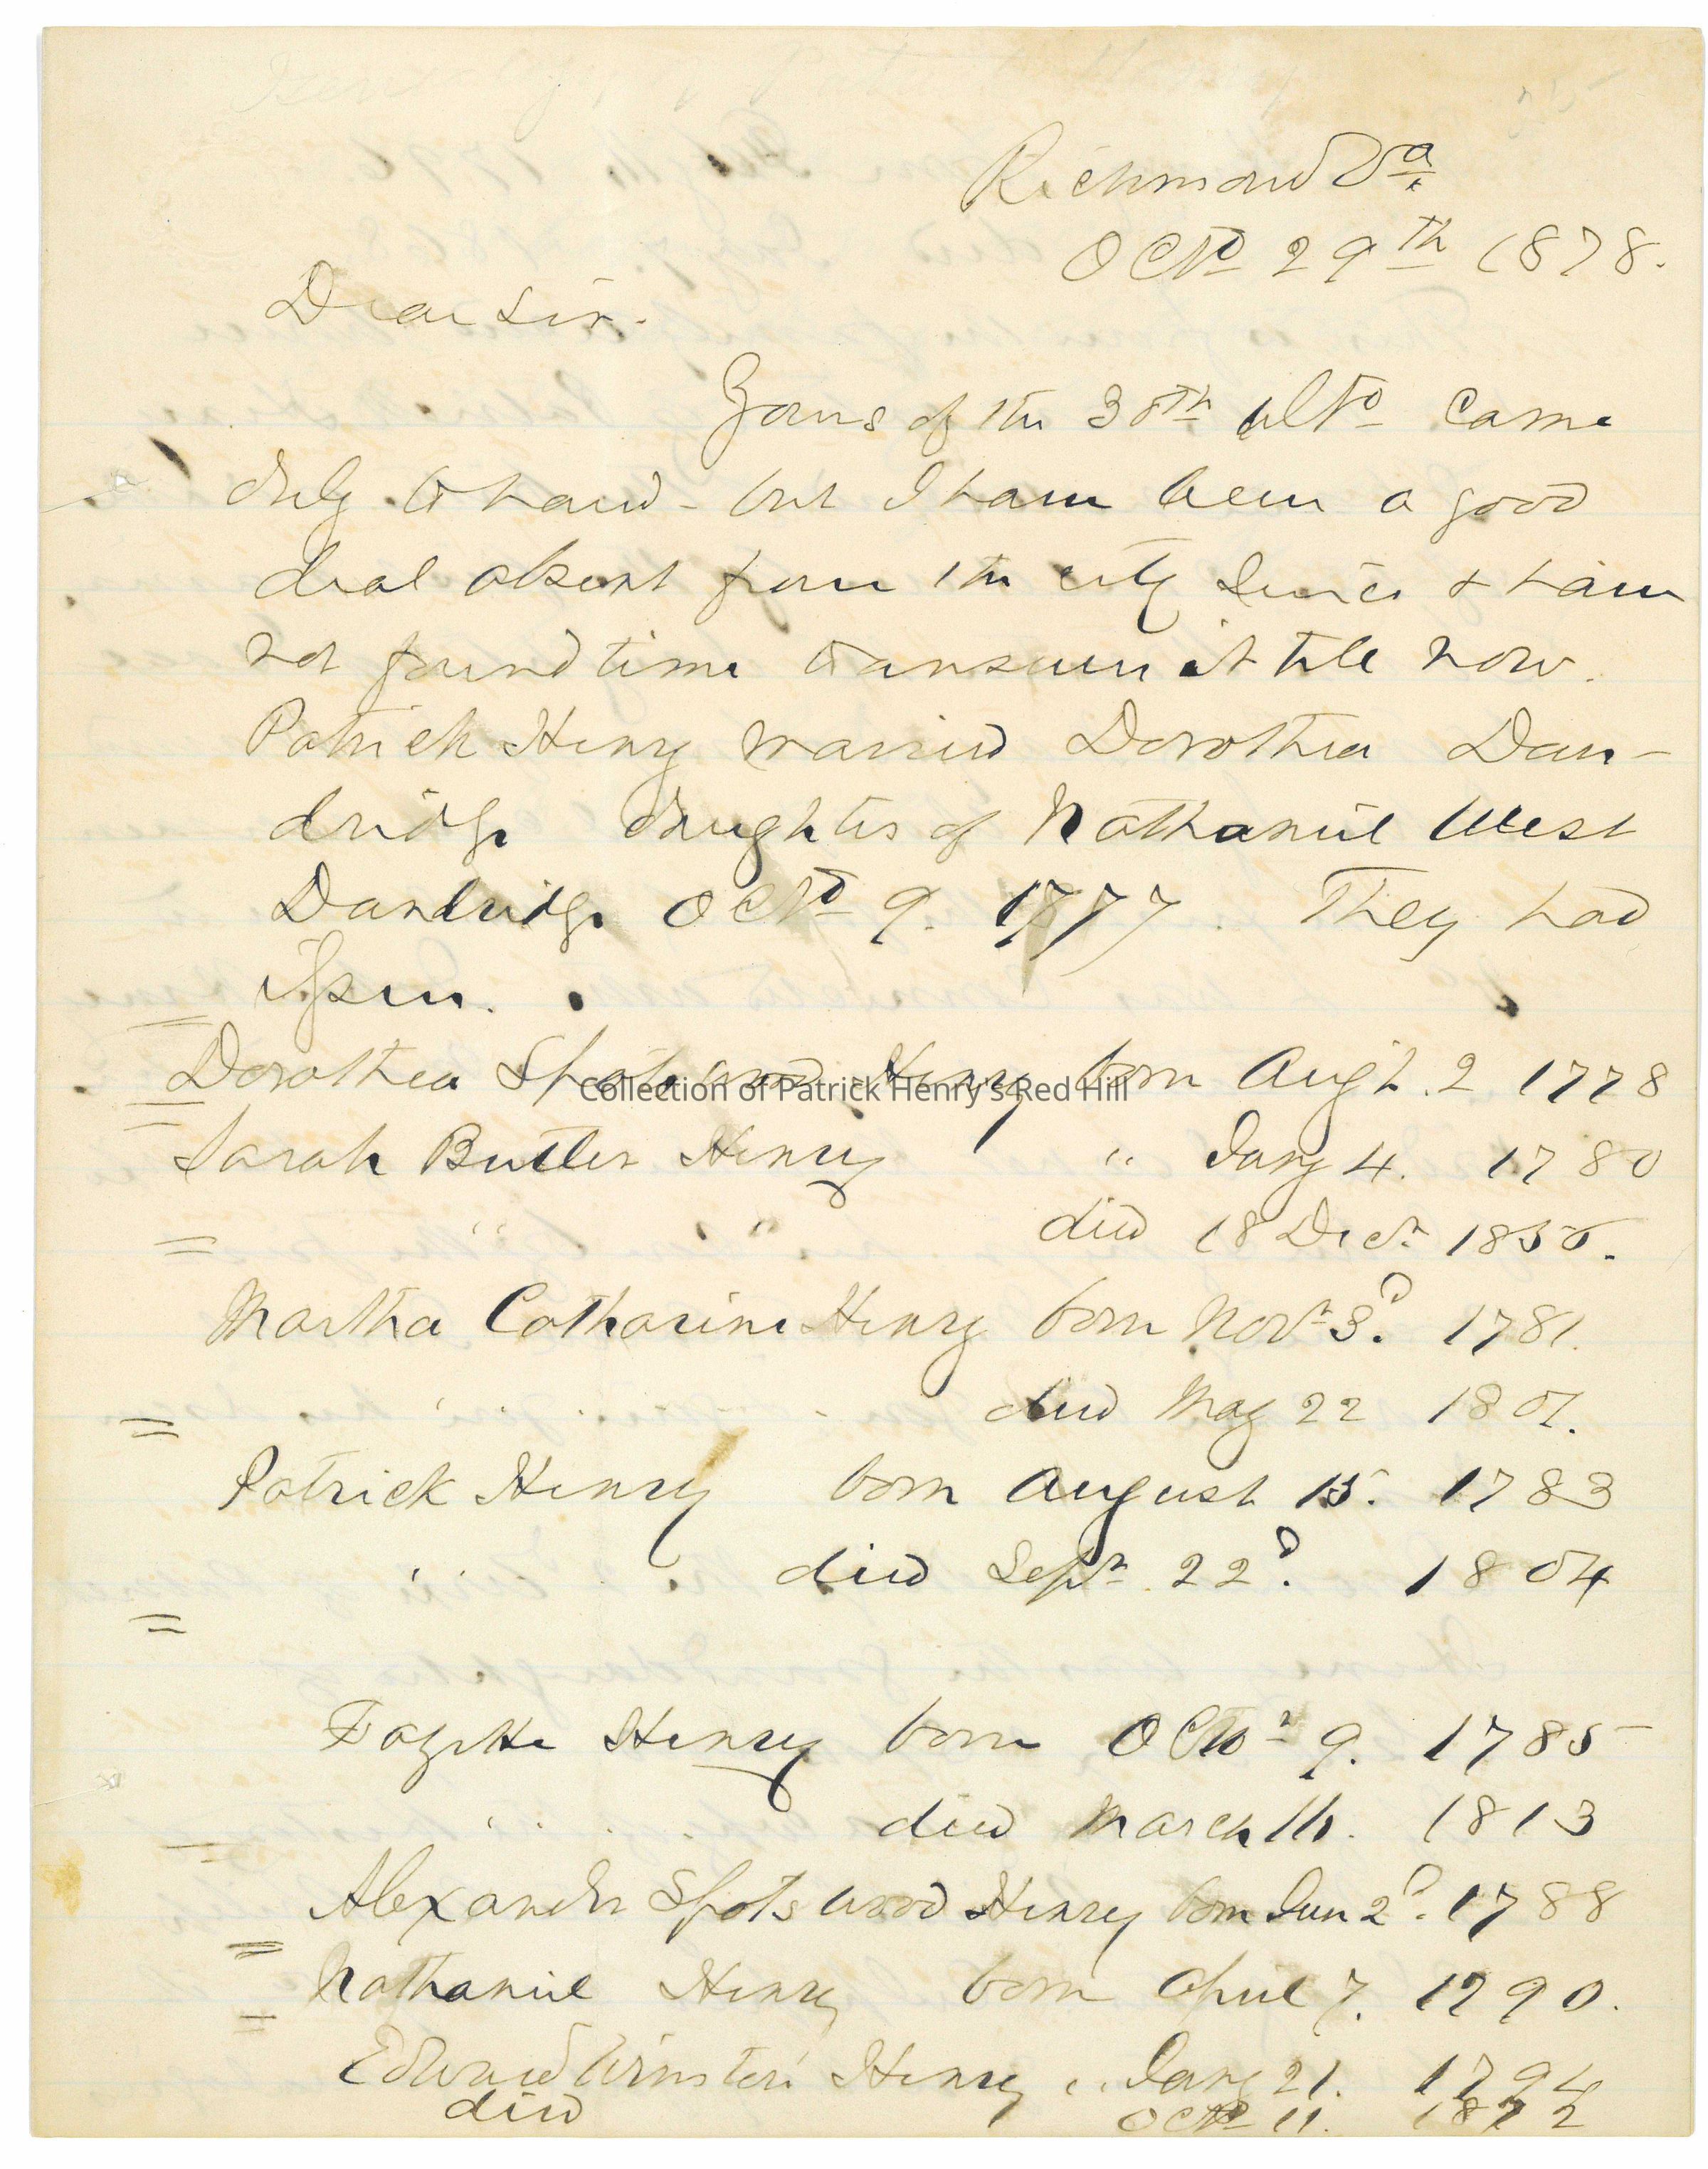 Richmond Va.
Octo 29th 1878.
Dear Sir.
Yours of the 30th ulto came
duly to hand - but I have been a good
deal absent from the city since & have
not found time to answer it till now.
Patrick Henry married Dorothea Dan-
dridge daughter of Nathaniel West
Dandridge Octo 9. 1777. They had
issue.
Dorothea Spotswood Henry born Augt. 2 1778
Collection of Patrick Henry's Red Hill
Sarah Butler Henry " Jany 4. 1780
" " died 18 Decr 1856.
Martha Catharine Henry born Novr 3d. 1781.
died May 22 1801.
Patrick Henry born August 15. 1783
" died Sepr. 22d. 1804
Fayette Henry born Octor 9. 1785
" died March 16. 1813
Alexander Spotswood Henry born Jun 2d. 1788
Nathaniel Henry born April 7. 1790.
Edward Winston Henry " Jany 21. 1794
died Octo 11. 1872